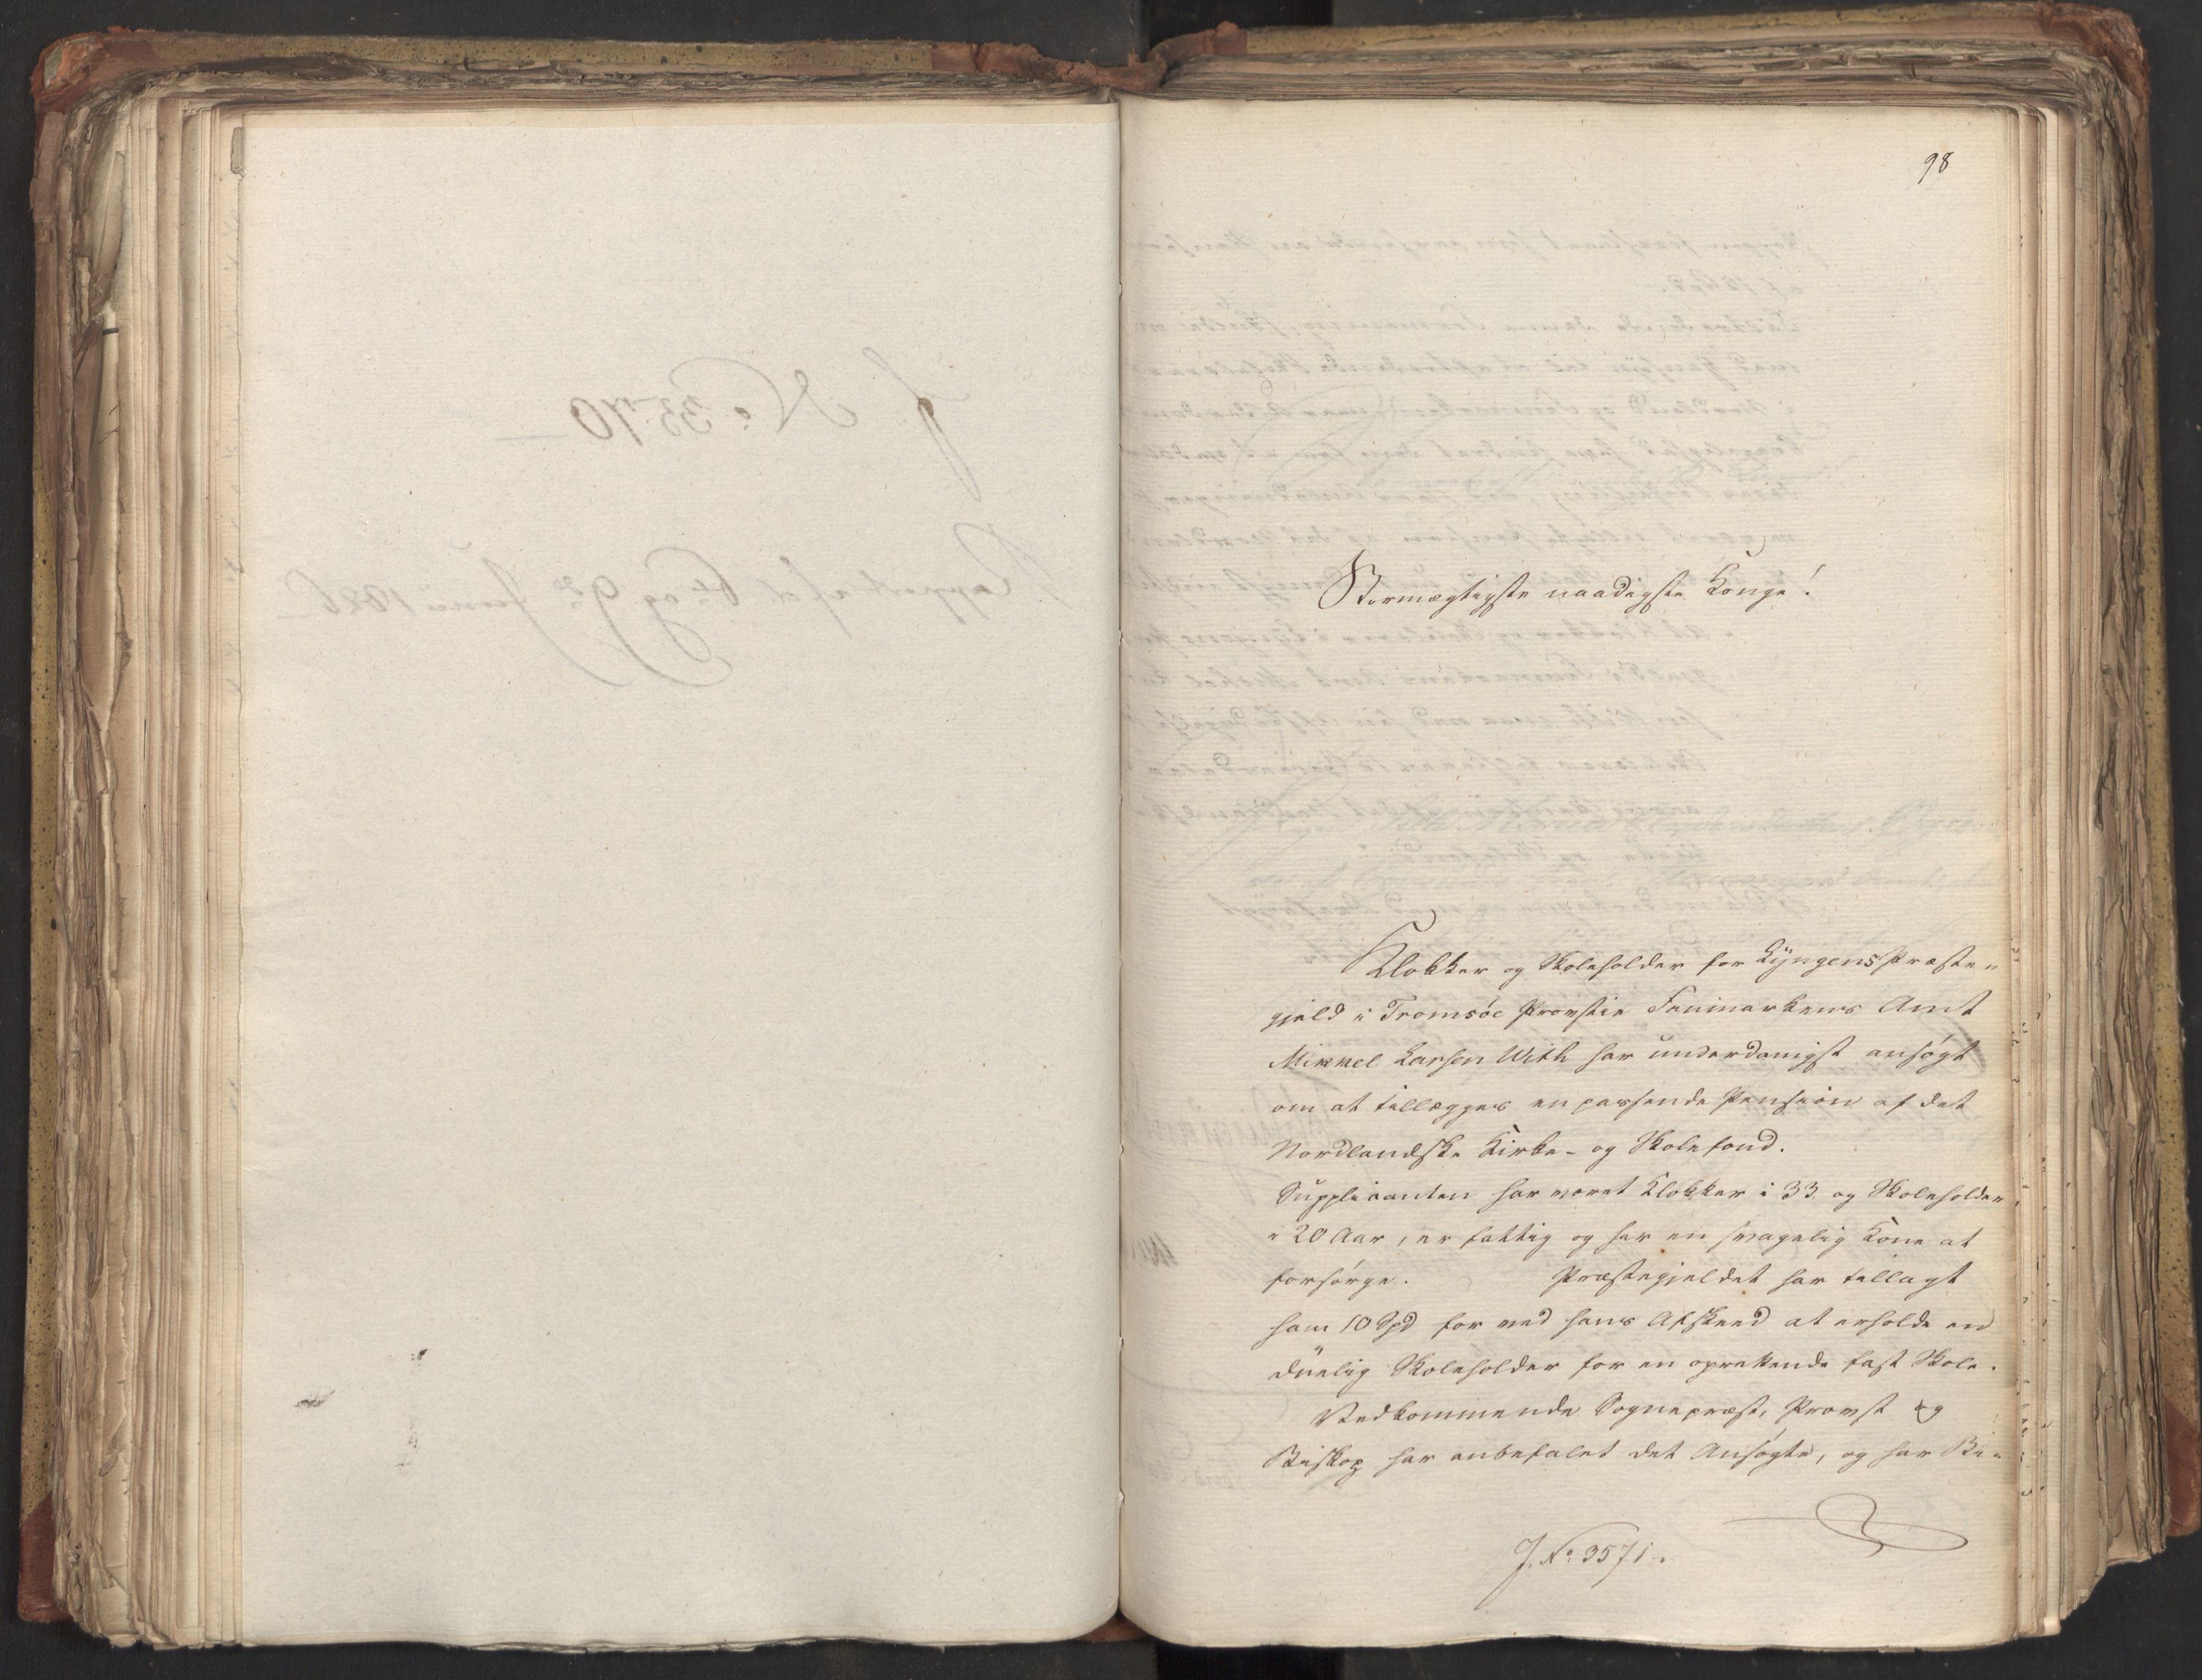 98
Stormægtigste naadigste Konge!
Klokker og Skoleholder for Lyngens Præste-
gjeld i Tromsøe Provstie Finmarkens Amt
Mikkel Larsen With har underdanigst ansøgt
om at tillægges en passende Pension af det
Nordlandske Kirke- og Skolefond.
Supplicanten har været Klokker i 33 og Skoleholder
i 20 Aar, er fattig og har en svagelig Kone at
forsørge. Præstegjeldet har tillagt
ham 10 Spd for ved hans Afskeed at erholde en
duelig Skoleholder for en oprettende fast Skole.
Vedkommende Sognepræst, Provst og
Biskop har anbefalet det Ansøgte, og har Bi-
J. No 3571.